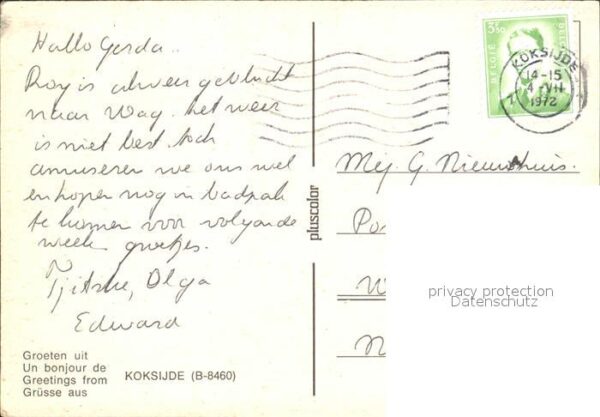 Hallo Gerda..
Roy is alweer gevlucht
naar Wag. het weer
is niet best toch
amuseren we ons wel
en hopen nog in badpak
te komen voor volgende
week groetjes.
Tjitske, Olga
Edward
Groeten uit
Un bonjour de
Greetings from
Grüsse aus
KOKSIJDE (B-8460)
pluscolor
BELGIE
BELGIQUE
3,50
KOKSIJDE
14-15
4-VII
1972
1
Mej. G. Nieuwhuis.
privacy protection
Datenschutz